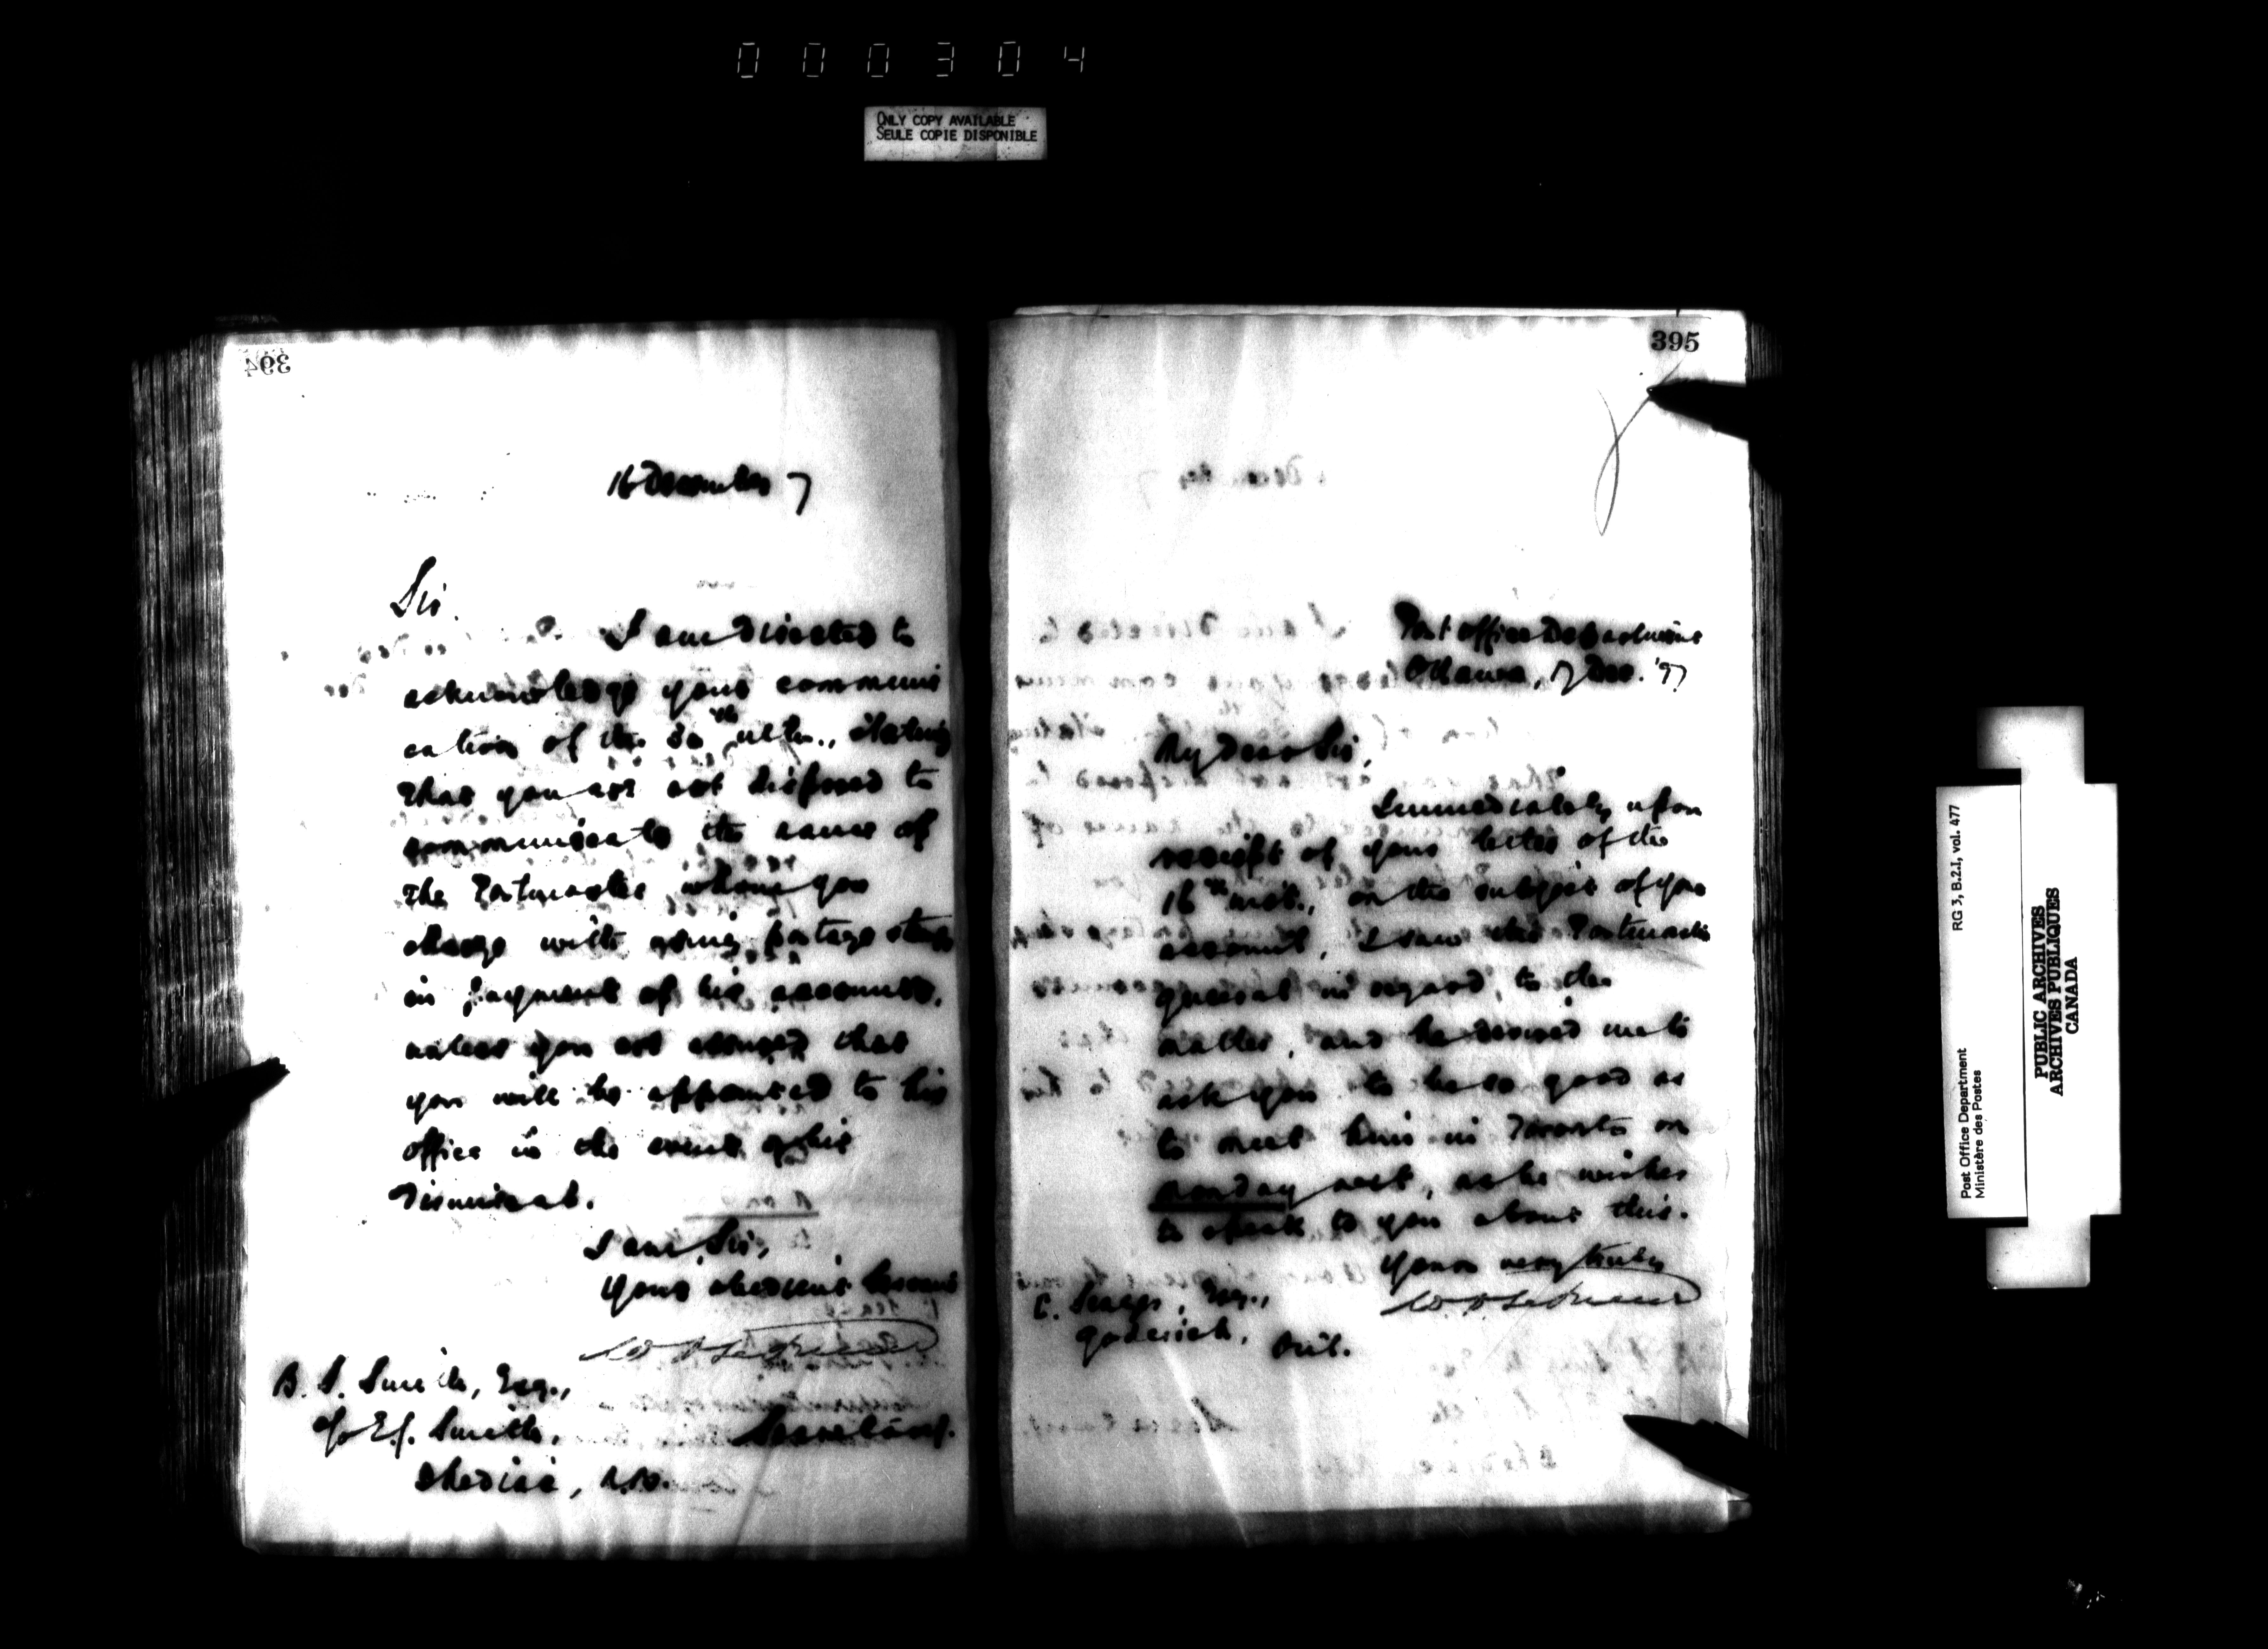 000304
ONLY COPY AVAILABLE
SEULE COPIE DISPONIBLE
394
16 December 7
Sir.
I am directed to
acknowledge your communi
cation of the 30th ulto., stating
that you are not disposed to
communicate the name of
the Postmaster whom you
charge with using postage stamps
in payment of his accounts,
unless you are assured that
you will be appointed to his
office in the event of his
dismissal.
I am, Sir,
Your obedient Servant
B. S. Smith, Esq.,
c/o E. J. Smith,
Secretary.
Shediac, N.B.
395
Post Office Department
Ottawa, 17 Dec. '97
My dear Sir,
Immediately upon
receipt of your letter of the
16th inst., on the subject of your
account, I saw the Postmaster
General in regard to the
matter, and he desired me to
ask you to be so good as
to meet him in Toronto on
Monday next, as he wishes
to speak to you about this.
Yours very truly
C. Seager, Esq.,
Goderich, Ont.
Post Office Department
Ministère des Postes
RG 3, B.2.I, vol. 477
PUBLIC ARCHIVES
ARCHIVES PUBLIQUES
CANADA